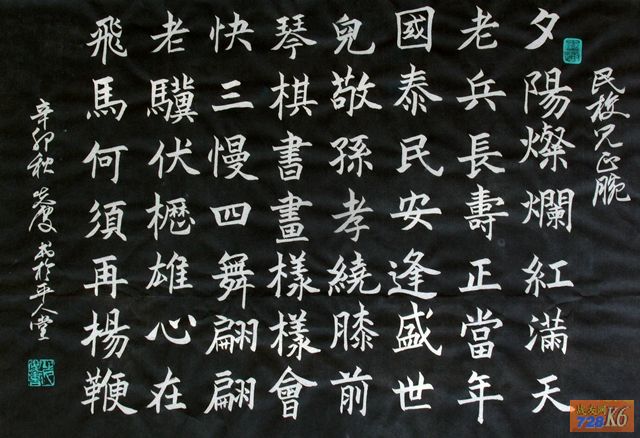 民族兄正腕
夕陽燦爛紅滿天
老兵長壽正當年
國泰民安逢盛世
兒敬孫孝繞膝前
琴棋書畫樣樣會
快三慢四舞翩翩
老驥伏櫪雄心在
飛馬何須再楊鞭
辛卯秋 書於平人堂
战友网
728K6